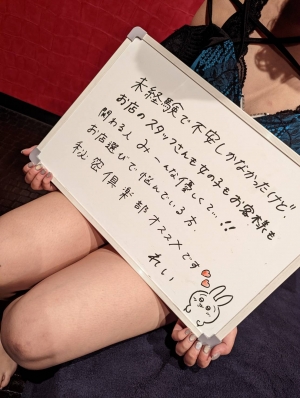 未経験で不安しかなかったけど、
お店のスタッフさんも女の子もお客様も
関わる人みーんな優しくて…!!
お店選びで悩んでいる方、
秘密倶楽部オススメです
れい